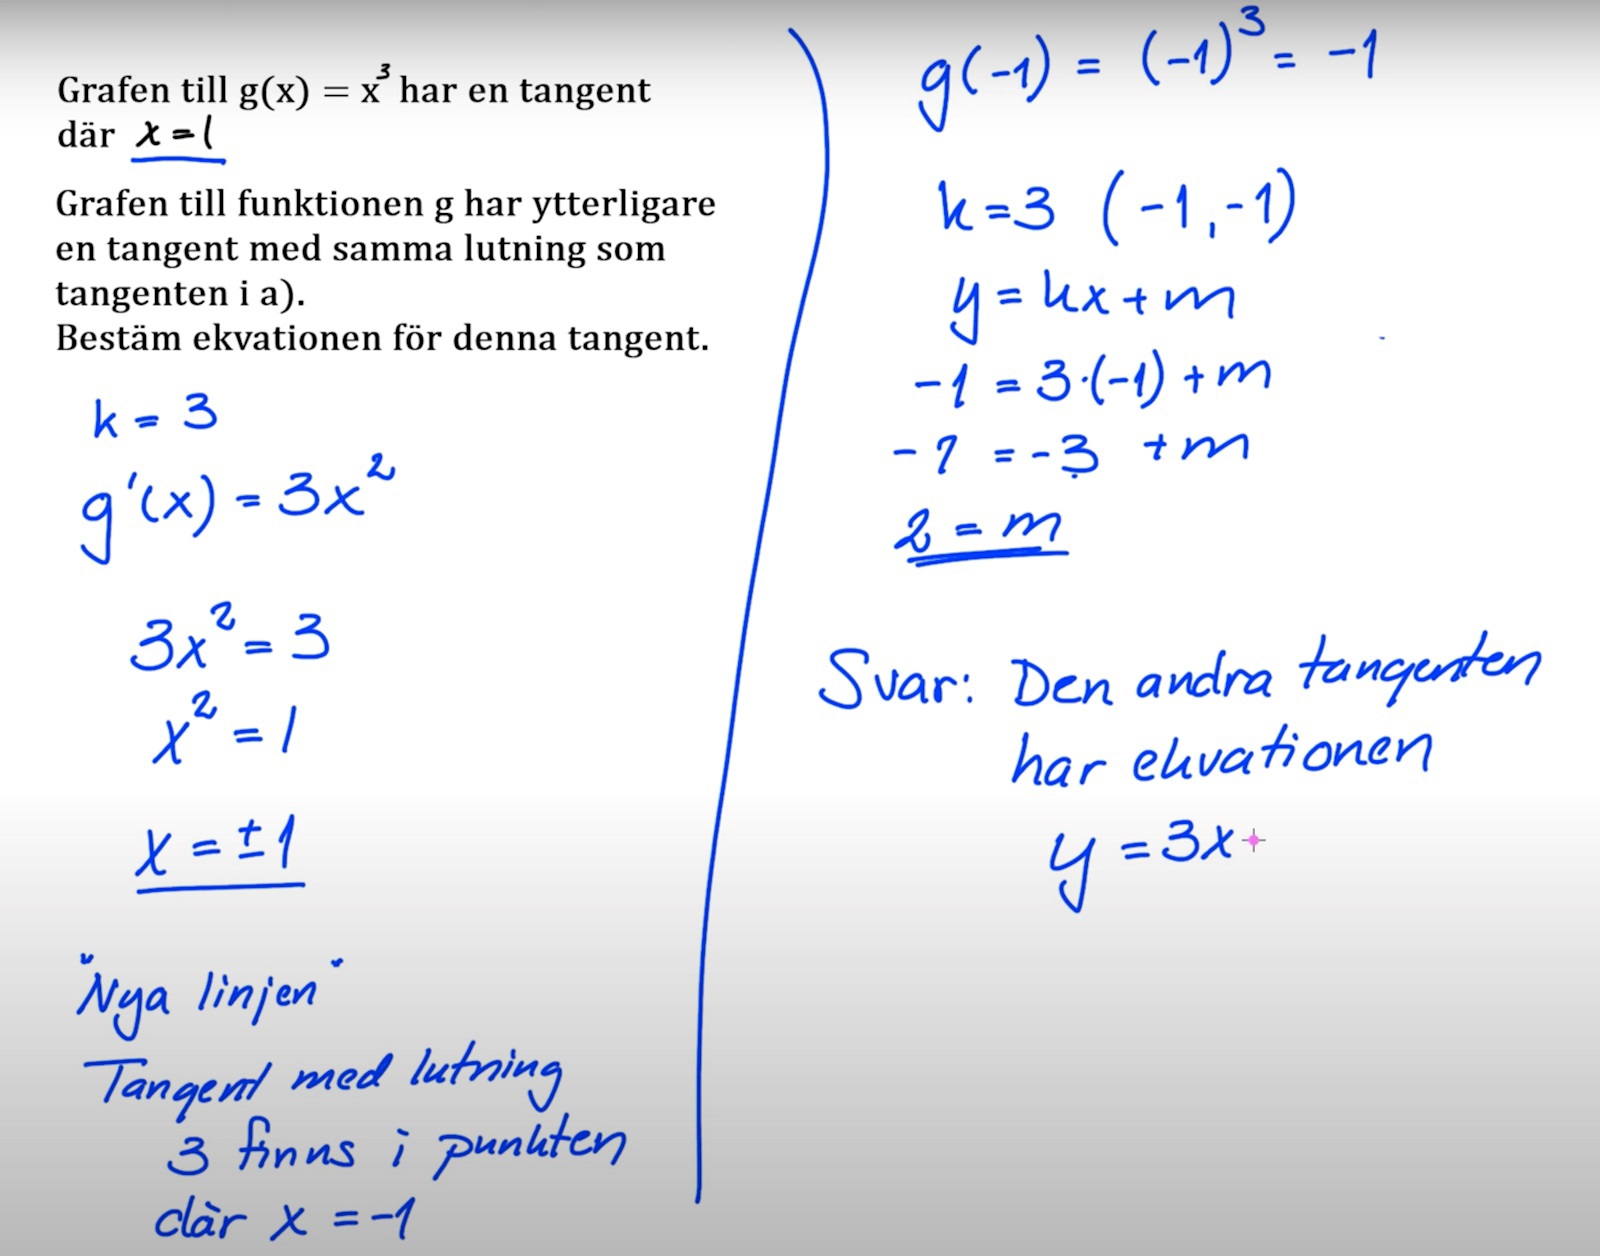 Grafen till g(x) = x³ har en tangent
där x = 1
Grafen till funktionen g har ytterligare
en tangent med samma lutning som
tangenten i a).
Bestäm ekvationen för denna tangent.
k = 3
g'(x) = 3x²
3x² = 3
x² = 1
x = ±1
"Nya linjen"
Tangent med lutning
3 finns i punkten
där x = -1
g(-1) = (-1)³ = -1
k = 3 (-1, -1)
y = kx + m
-1 = 3·(-1) + m
-1 = -3 + m
2 = m
Svar: Den andra tangenten
har ekvationen
y = 3x